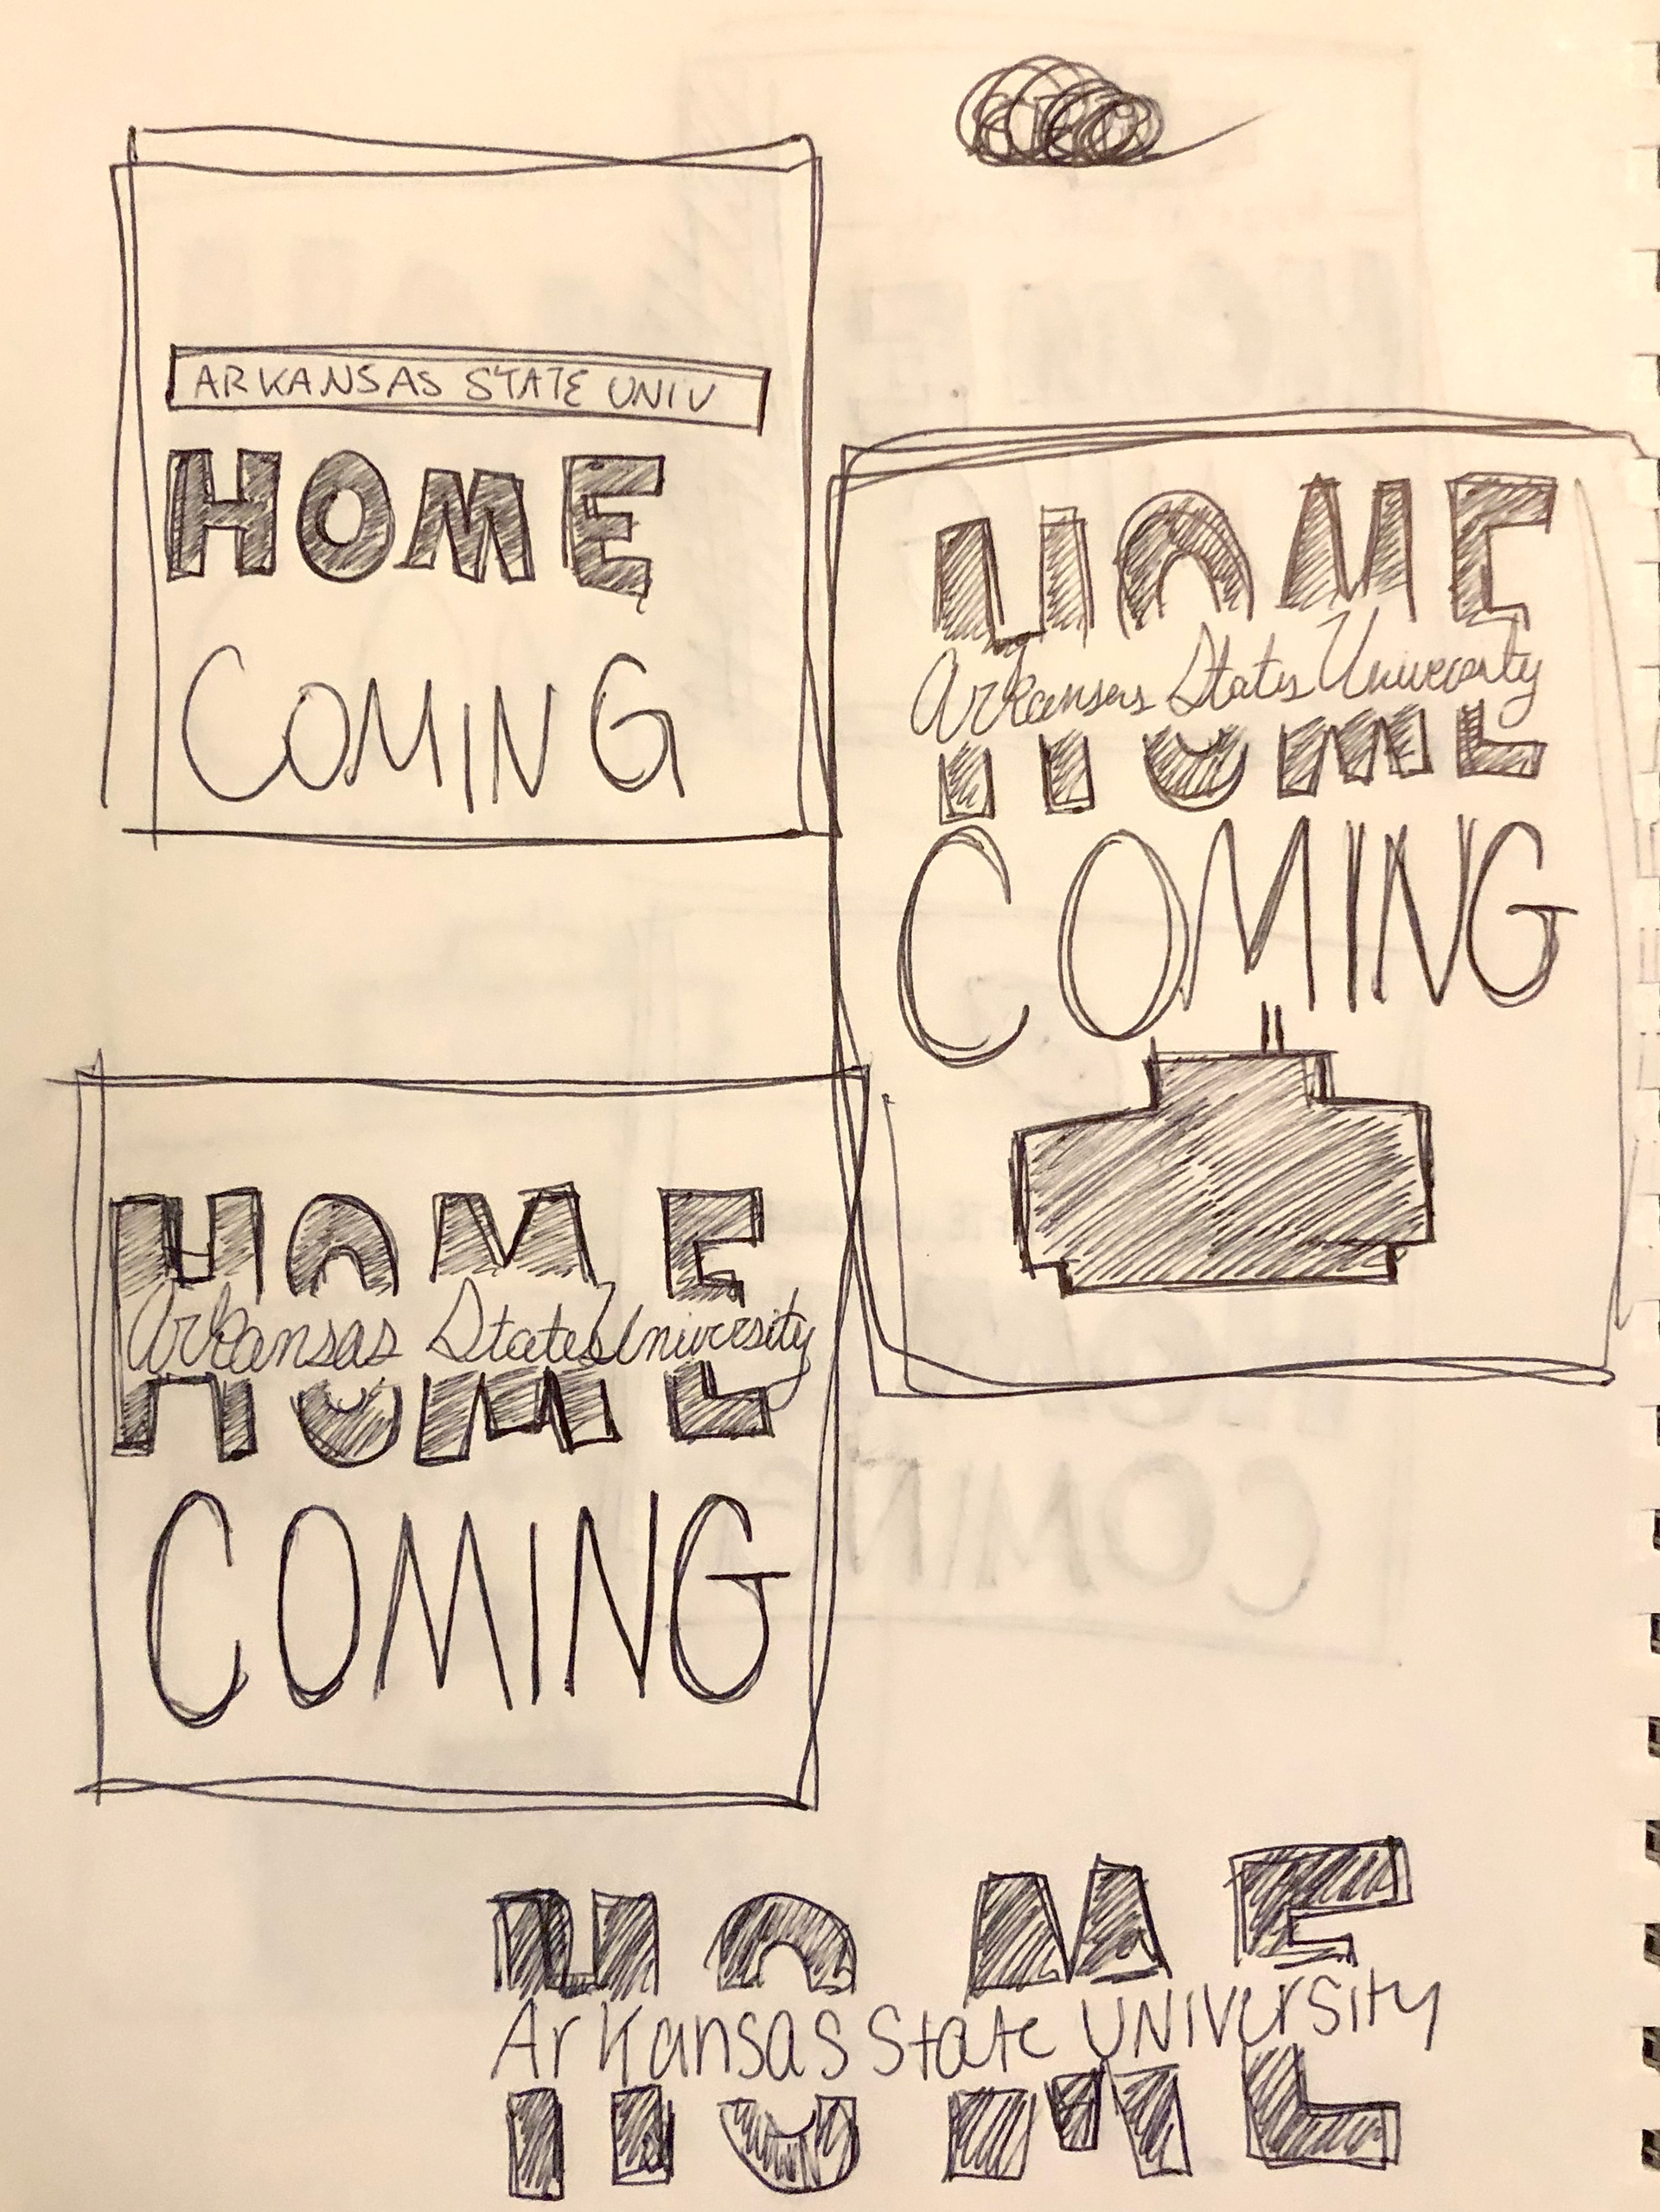 ARKANSAS STATE UNIV
HOME
COMING
HOME
Arkansas State University
COMING
HOME
Arkansas State University
COMING
HOME
Arkansas State University